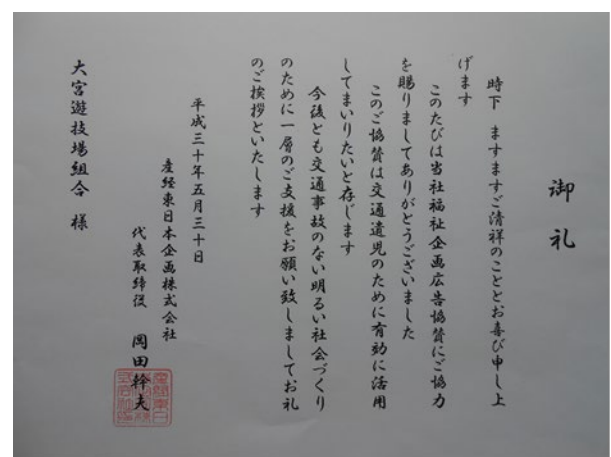 御礼
時下 ますますご清祥のこととお喜び申し上
げます
このたびは当社福祉企画広告協賛にご協力
を賜りましてありがとうございました
このご協賛は交通遺児のために有効に活用
してまいりたいと存じます
今後とも交通事故のない明るい社会づくり
のために一層のご支援をお願い致しましてお礼
のご挨拶といたします
平成三十年五月三十日
産経東日本企画株式会社
代表取締役 岡田幹夫
大宮遊技場組合 様